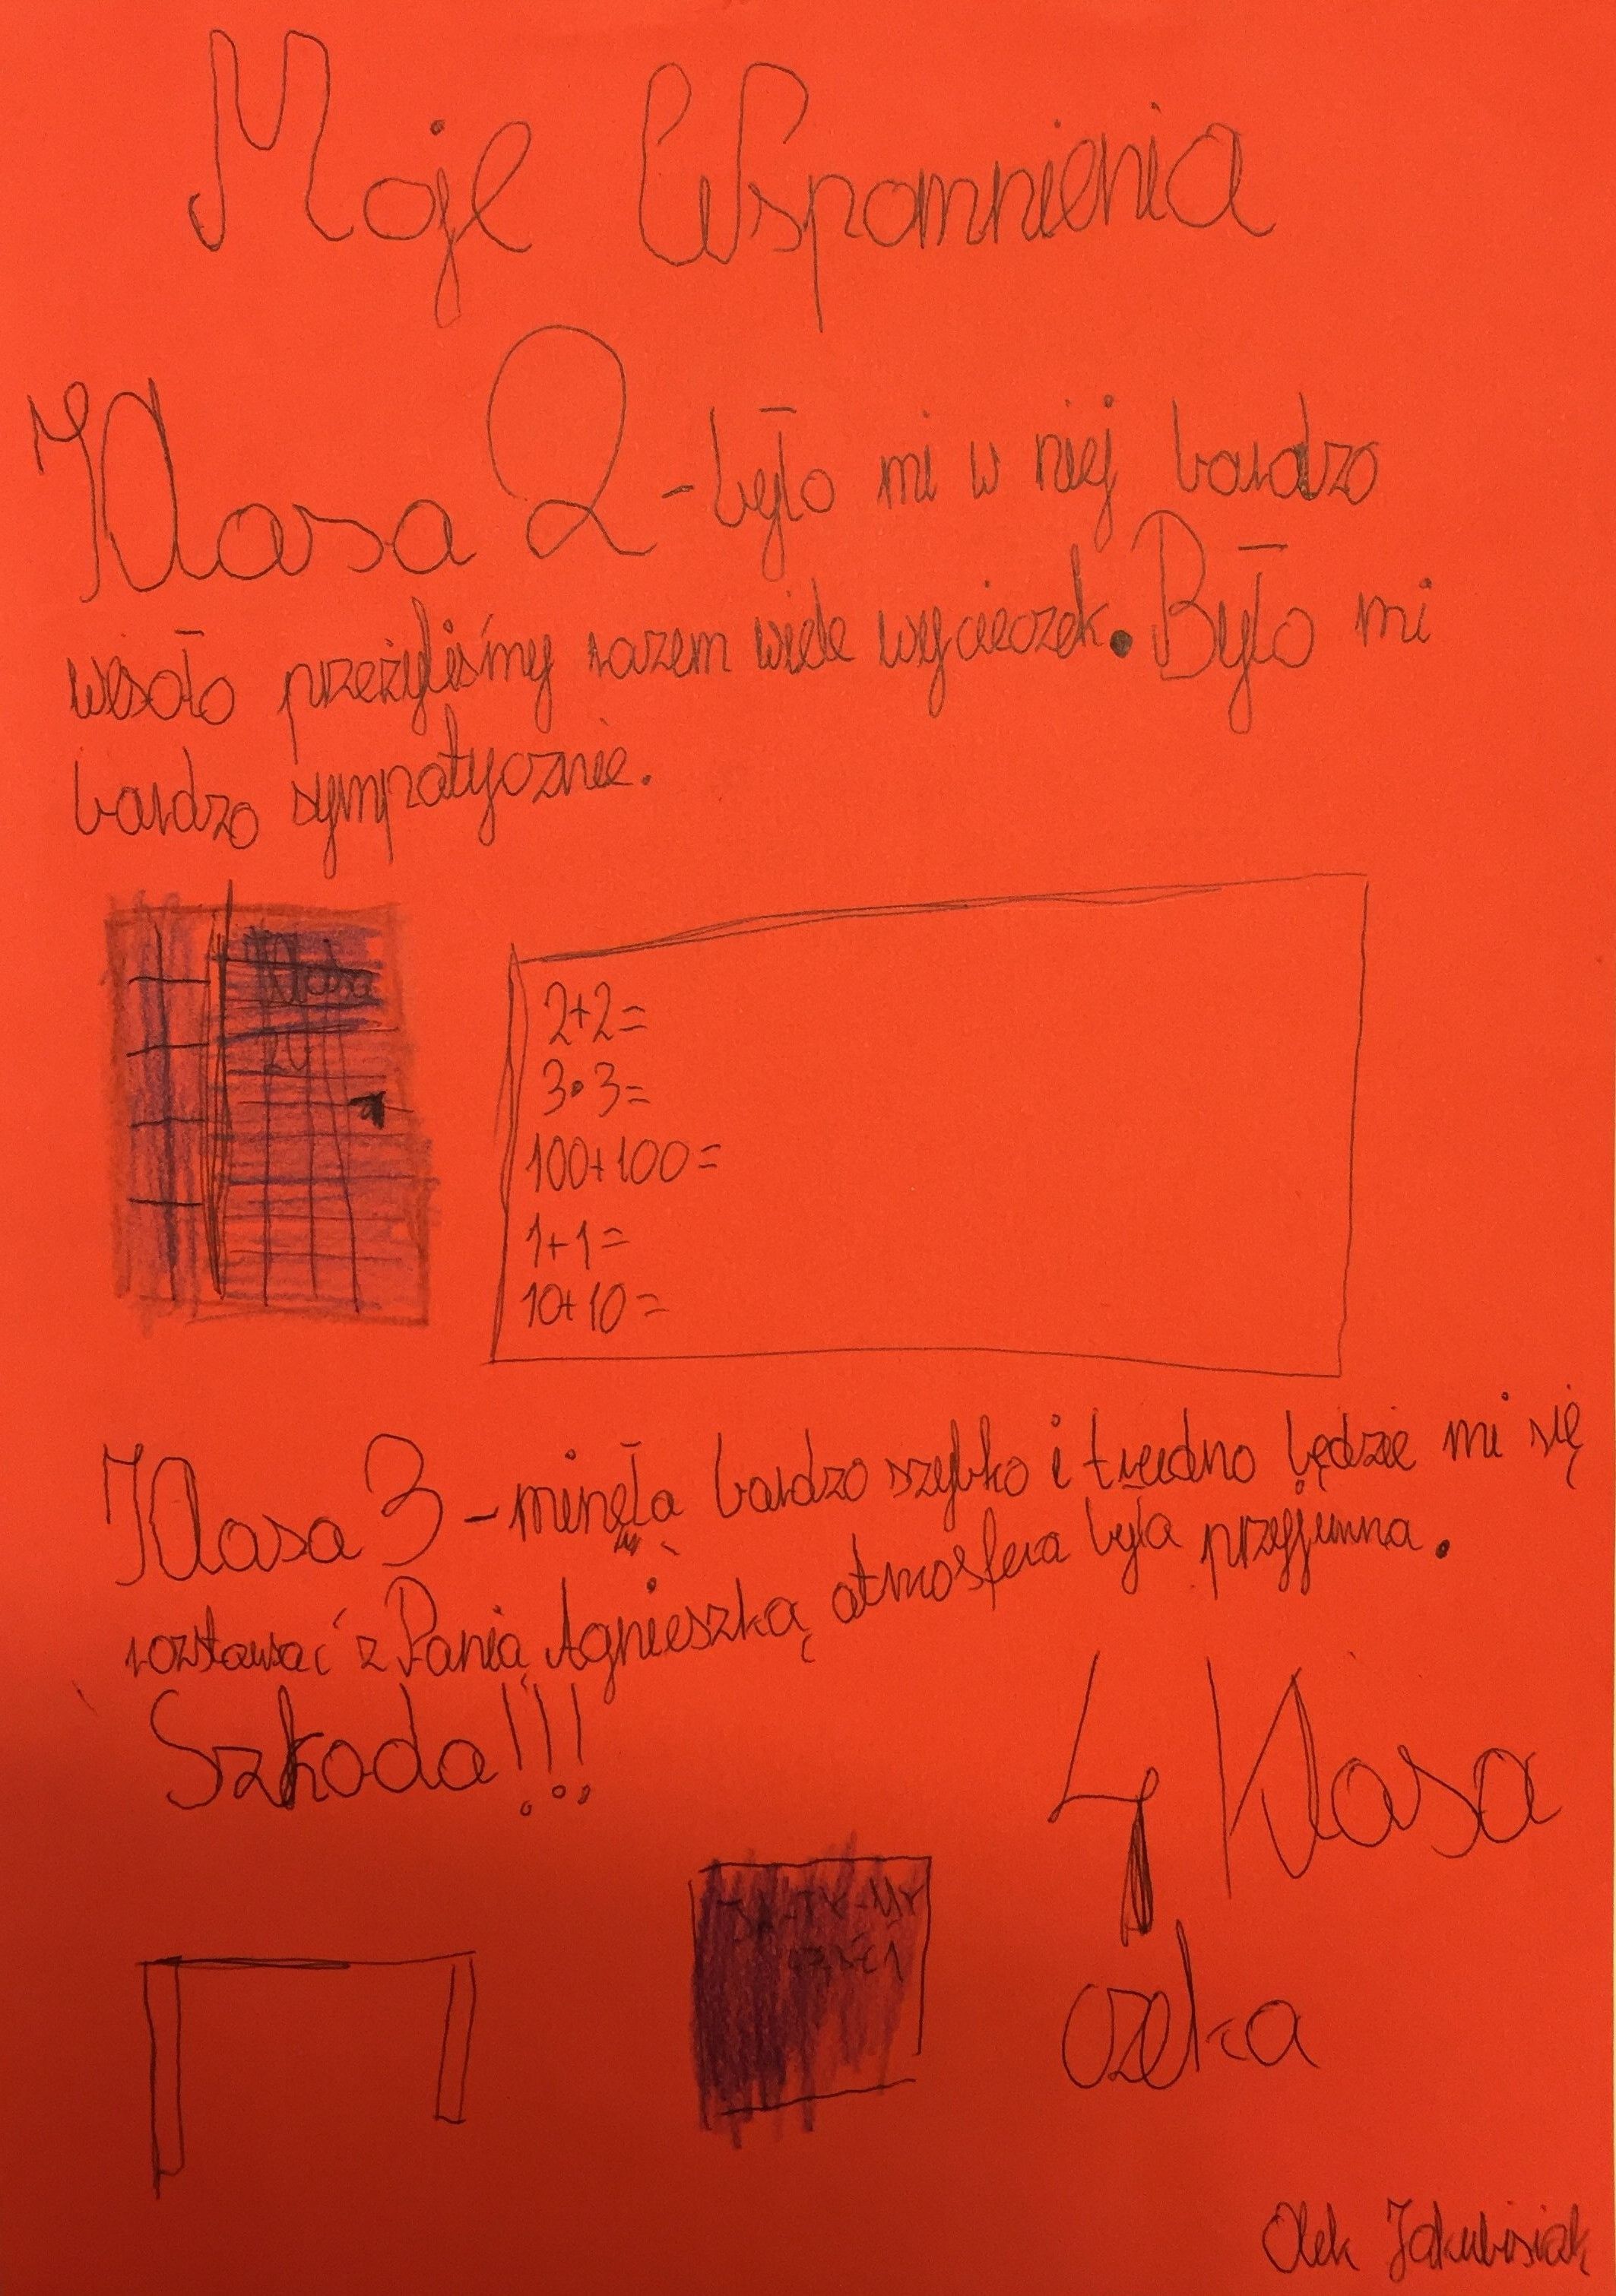 Moje Wspomnienia
Klasa 2 - było mi w niej bardzo
wesoło przeżyliśmy razem wiele wycieczek. Było mi
bardzo sympatycznie.
Klasa
2+2=
3•3=
100+100=
1+1=
10+10=
Klasa 3 - minęła bardzo szybko i trudno będzie mi się
rozstawać z Panią Agnieszką, atmosfera była przyjemna.
Szkoda!!!
4 Klasa
czeka
JA-TY-MY
CZĘŚĆ 1
Olek Jakubisiak